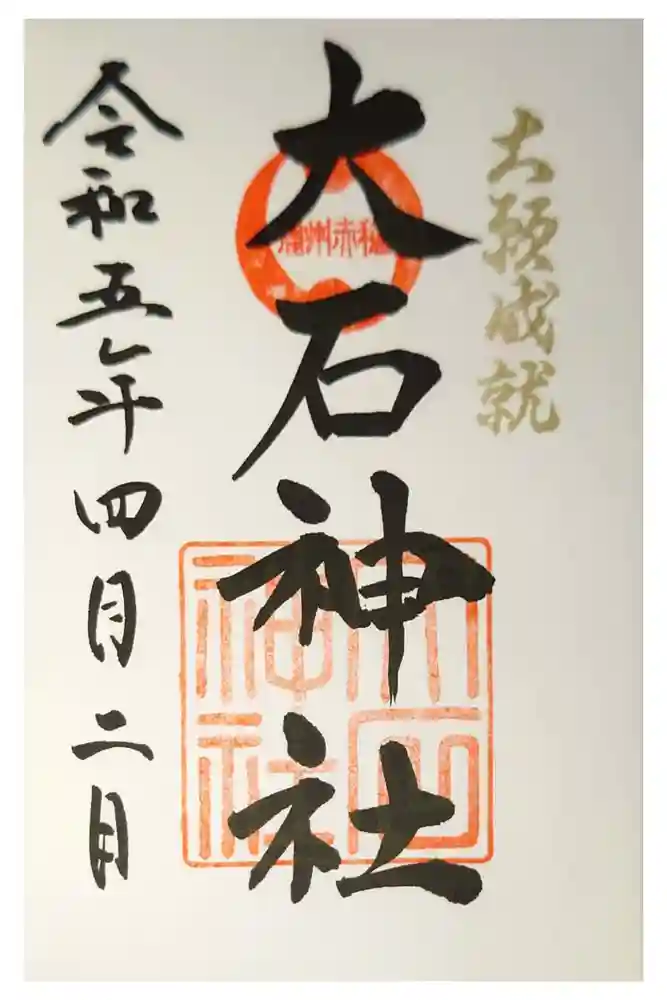 大願成就
播州赤穂
大石神社
大石
神社
令和五年四月二日